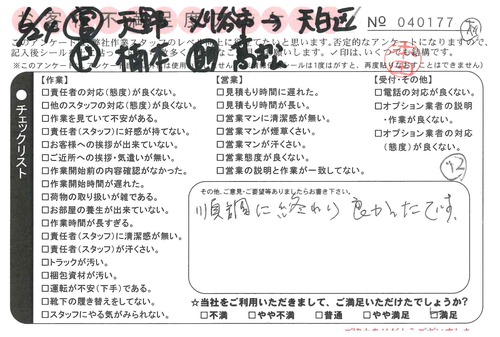 5/29 営 天野 刈谷市→天白区
No 040177
このアンケートは弊社作業スタッフのレベル
否定的なアンケートになりますので、
記入後シール
✓印は、いくつでも結構です。
【作業】
□責任者の対応(態度)が良くない。
□他のスタッフの対応(態度)が良くない。
□作業を見ていて不安がある。
□責任者(スタッフ)に好感が持てない。
□お客様への挨拶が出来ていない。
□ご近所への挨拶・気遣いが無い。
□作業開始前の内容確認がなかった。
□作業開始時間が遅れた。
□荷物の取り扱いが雑である。
□お部屋の養生が出来ていない。
□作業時間が長すぎる。
□責任者(スタッフ)に清潔感が無い。
□責任者(スタッフ)が汗くさい。
□トラックが汚い。
□梱包資材が汚い。
□運転が不安(下手)である。
□靴下の履き替えをしてない。
□スタッフにやる気がみられない。
【営業】
□見積もり時間に遅れた。
□見積もり時間が長い。
□営業マンに清潔感が無い。
□営業マンが煙草くさい。
□営業マンが汗くさい。
□営業態度が良くない。
□営業の説明と作業が一致してない。
【受付・その他】
□電話の対応が良くない。
□オプション業者の説明
・作業が良くない。
□オプション業者の対応
(態度)が良くない。
チェックリスト
92
その他、ご意見・ご要望等ありましたらお書き下さい。
順調に終わり良かったです。
☆当社をご利用いただきまして、ご満足いただけたでしょうか?
□不満 □やや不満 □普通 □やや満足 □満足